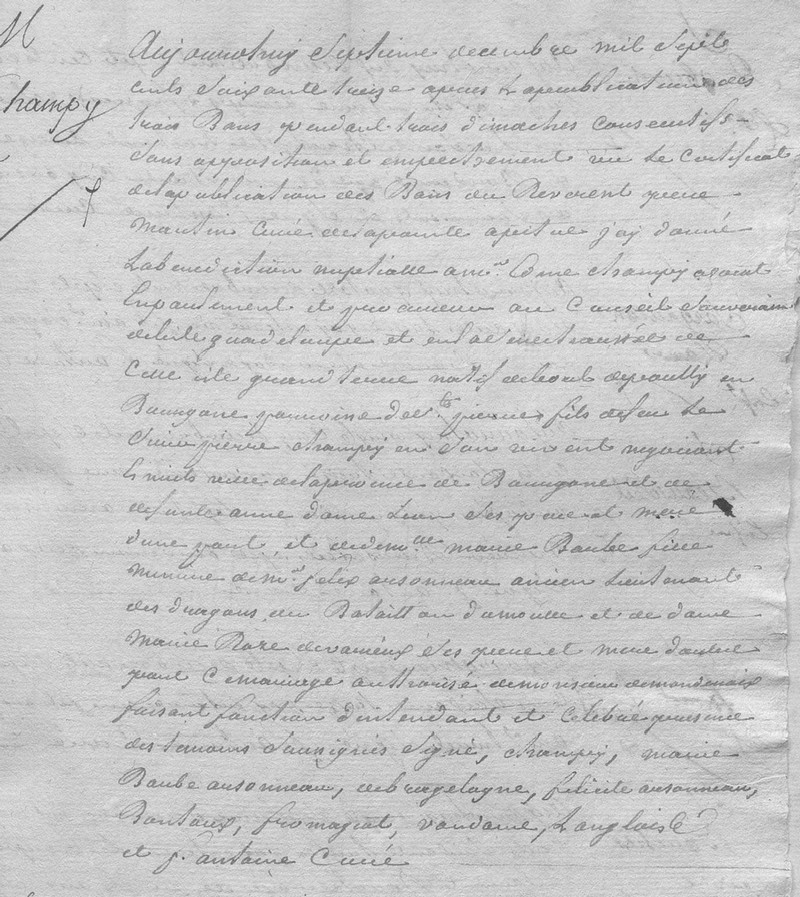 M
Champy
Aujourdhuy Septieme decembre mil Sept
cents Soixante treize apres Lapublication des
trois Bans pendant trois dimaches consecutifs
Sans opposition et empechement vu Le Certificat
delapublication des Bans du Reverent pere
Martin Curé delapointe apitre j'ay donné
Labenediction nuptialle a mr. Come champy avocat
Enparlement et procureur au Conseil Souverain
de lisle guadeloupe et en la Senechaussée de
Cette isle grand terre natif debourg depouilly en
Bourgone parroisse de St. pierre fils defeu Le
Sieur pierre champy en Son vivant negociant
de ville delaprovince de Bourgone et de
defunte anne dame Ses pere et mere
d'une part, et de dem.lle marie Barbe fille
mineure de mr. felix ansonneau ancien Lieutenant
des dragons, du Bataillon damoulle et de dame
Marie Roze devarieux Ses pere et mere dautre
part Ce mariage authorisé demonsieur demondenoix
faisant fonction d'intendant et Celebré presence
des temoins Sousignés Signé, champy, marie
Barbe ansonneau, debragelogne, felicité ansonneau,
Bontoux, fromageot, vandame, Langlois
et f. antoine Curé